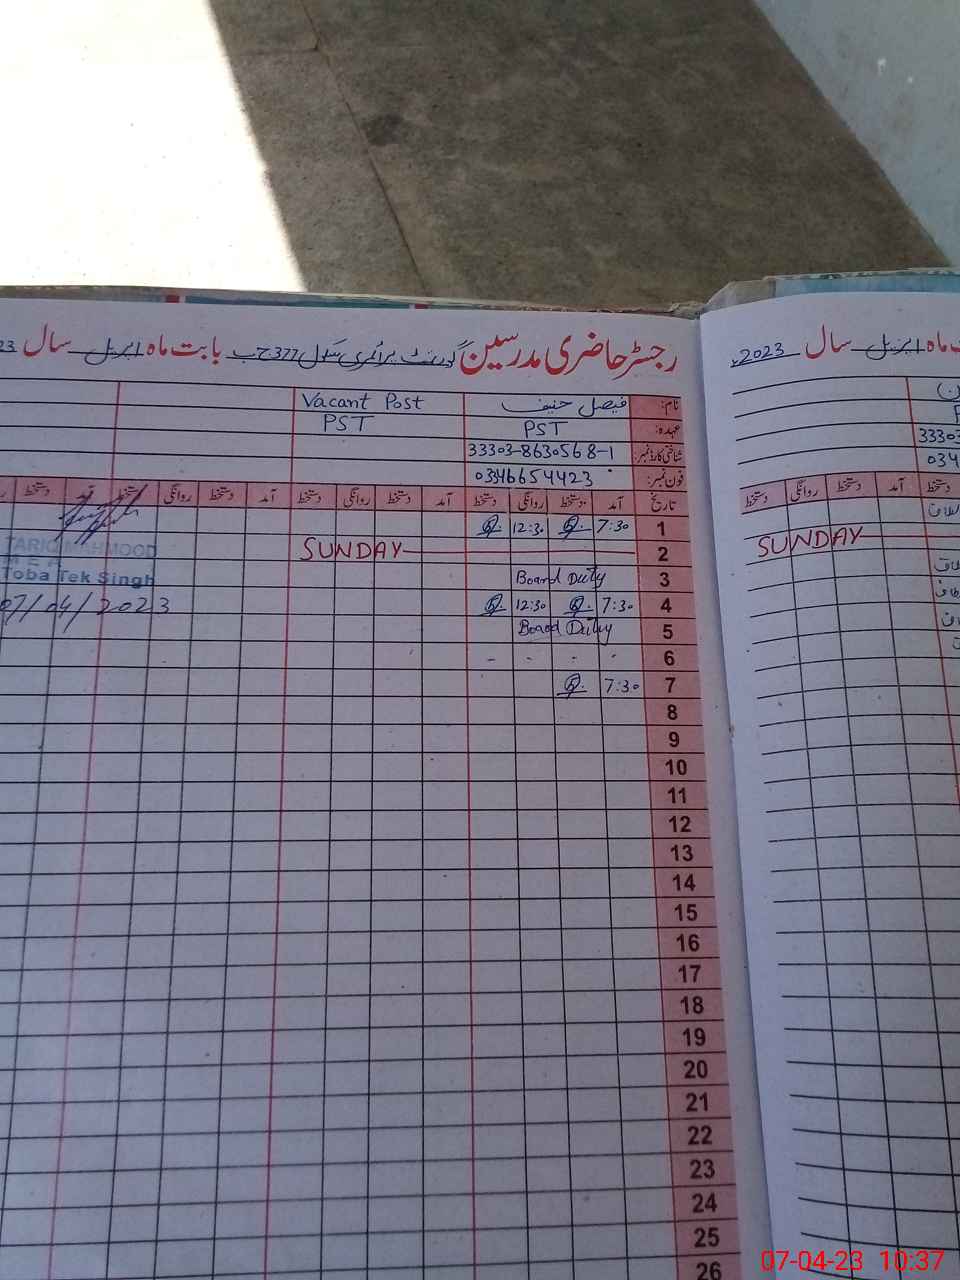 رجسٹر حاضری مدرسین گورنمنٹ پرائمری سکول 377 ج ب بابت ماہ اپریل سال 23
نام: فیصل حنیف Vacant Post
عہدہ: PST PST
شناختی کارڈ نمبر: 33303-8630568-1
فون نمبر: 03466544423
تاریخ آمد دستخط روانگی دستخط آمد دستخط روانگی دستخط آمد دستخط روانگی دستخط
1 7:30 12:30
2 SUNDAY
3 Board Duty
4 7:30 12:30
5 Board Duty
6
7 7:30
8
9
10
11
12
13
14
15
16
17
18
19
20
21
22
23
24
25
26
TARIQ MAHMOOD
M E A
Toba Tek Singh
07/04/2023
ماہ اپریل سال 2023
33303
034
آمد دستخط روانگی دستخط
SUNDAY
07-04-23 10:37